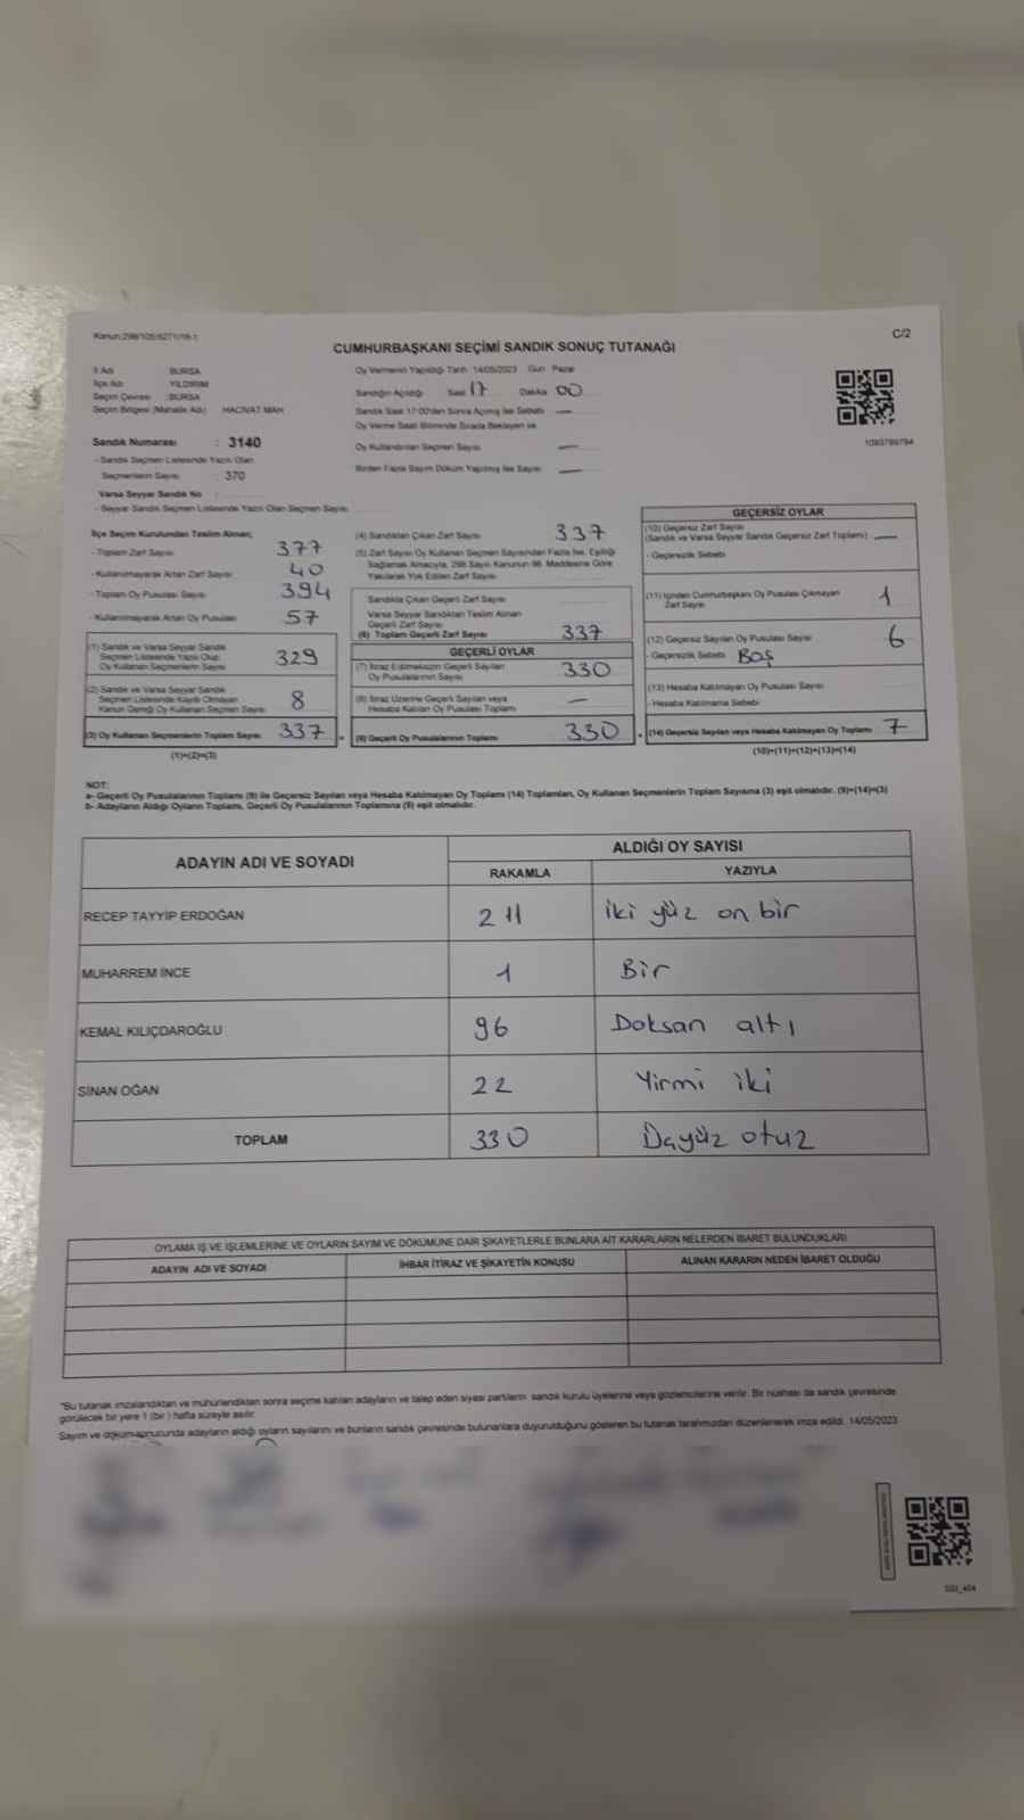 Kanun:298/105;6271/19-1
C/2
CUMHURBAŞKANI SEÇİMİ SANDIK SONUÇ TUTANAĞI
İl Adı BURSA
İlçe Adı YILDIRIM
Seçim Çevresi :BURSA
Seçim Bölgesi (Mahalle Adı) HACİVAT MAH
Sandık Numarası : 3140
- Sandık Seçmen Listesinde Yazılı Olan
Seçmenlerin Sayısı : 370
Varsa Seyyar Sandık No :
- Seyyar Sandık Seçmen Listesinde Yazılı Olan Seçmen Sayısı
Oy Vermenin Yapıldığı Tarih 14/05/2023 Gün Pazar
Sandığın Açıldığı Saat 17 Dakika 00
Sandık Saat 17:00'den Sonra Açılmış İse Sebebi —
Oy Verme Saati Bitiminde Sırada Bekleyen ve
Oy Kullandırılan Seçmen Sayısı —
Birden Fazla Sayım Döküm Yapılmış İse Sayısı —
1093799794
İlçe Seçim Kurulundan Teslim Alınan;
- Toplam Zarf Sayısı 377
- Kullanılmayarak Artan Zarf Sayısı 40
- Toplam Oy Pusulası Sayısı 394
- Kullanılmayarak Artan Oy Pusulası 57
(1) Sandık ve Varsa Seyyar Sandık
Seçmen Listesinde Yazılı Olup
Oy Kullanan Seçmenlerin Sayısı 329
(2) Sandık ve Varsa Seyyar Sandık
Seçmen Listesinde Kaydı Olmayan
Kanun Gereği Oy Kullanan Seçmen Sayısı 8
(3) Oy Kullanan Seçmenlerin Toplam Sayısı 337
(1)+(2)=(3)
(4) Sandıktan Çıkan Zarf Sayısı 337
(5) Zarf Sayısı Oy Kullanan Seçmen Sayısından Fazla İse, Eşitliği
Sağlamak Amacıyla, 298 Sayılı Kanunun 98. Maddesine Göre
Yakılarak Yok Edilen Zarf Sayısı
Sandıkta Çıkan Geçerli Zarf Sayısı
Varsa Seyyar Sandıktan Teslim Alınan
Geçerli Zarf Sayısı
(6) Toplam Geçerli Zarf Sayısı 337
GEÇERLİ OYLAR
(7) İtiraz Edilmeksizin Geçerli Sayılan
Oy Pusulalarının Sayısı 330
(8) İtiraz Üzerine Geçerli Sayılan veya
Hesaba Katılan Oy Pusulası Toplamı —
(9) Geçerli Oy Pusulalarının Toplamı 330
GEÇERSİZ OYLAR
(10) Geçersiz Zarf Sayısı
(Sandık ve Varsa Seyyar Sandık Geçersiz Zarf Toplamı) —
- Geçersizlik Sebebi
(11) İçinden Cumhurbaşkanı Oy Pusulası Çıkmayan
Zarf Sayısı 1
(12) Geçersiz Sayılan Oy Pusulası Sayısı 6
- Geçersizlik Sebebi Boş
(13) Hesaba Katılmayan Oy Pusulası Sayısı
- Hesaba Katılmama Sebebi
(14) Geçersiz Sayılan veya Hesaba Katılmayan Oy Toplamı 7
(10)+(11)+(12)+(13)=(14)
NOT:
a- Geçerli Oy Pusulalarının Toplamı (9) ile Geçersiz Sayılan veya Hesaba Katılmayan Oy Toplamı (14) Toplamları, Oy Kullanan Seçmenlerin Toplam Sayısına (3) eşit olmalıdır. (9)+(14)=(3)
b- Adayların Aldığı Oyların Toplamı, Geçerli Oy Pusulalarının Toplamına (9) eşit olmalıdır.
ADAYIN ADI VE SOYADI
ALDIĞI OY SAYISI
RAKAMLA YAZIYLA
RECEP TAYYİP ERDOĞAN 211 iki yüz on bir
MUHARREM İNCE 1 Bir
KEMAL KILIÇDAROĞLU 96 Doksan altı
SİNAN OĞAN 22 Yirmi iki
TOPLAM 330 Üçyüz otuz
OYLAMA İŞ VE İŞLEMLERİNE VE OYLARIN SAYIM VE DÖKÜMÜNE DAİR ŞİKAYETLERLE BUNLARA AİT KARARLARIN NELERDEN İBARET BULUNDUKLARI
ADAYIN ADI VE SOYADI İHBAR İTİRAZ VE ŞİKAYETİN KONUSU ALINAN KARARIN NEDEN İBARET OLDUĞU
"Bu tutanak imzalandıktan ve mühürlendikten sonra seçime katılan adayların ve talep eden siyasi partilerin sandık kurulu üyelerine veya gözlemcilerine verilir. Bir nüshası da sandık çevresinde
görülecek bir yere 1 (bir) hafta süreyle asılır.
Sayım ve döküm sonucunda adayların aldığı oyların sayılarını ve bunların sandık çevresinde bulunanlara duyurulduğunu gösteren bu tutanak tarafımızdan düzenlenerek imza edildi. 14/05/2023